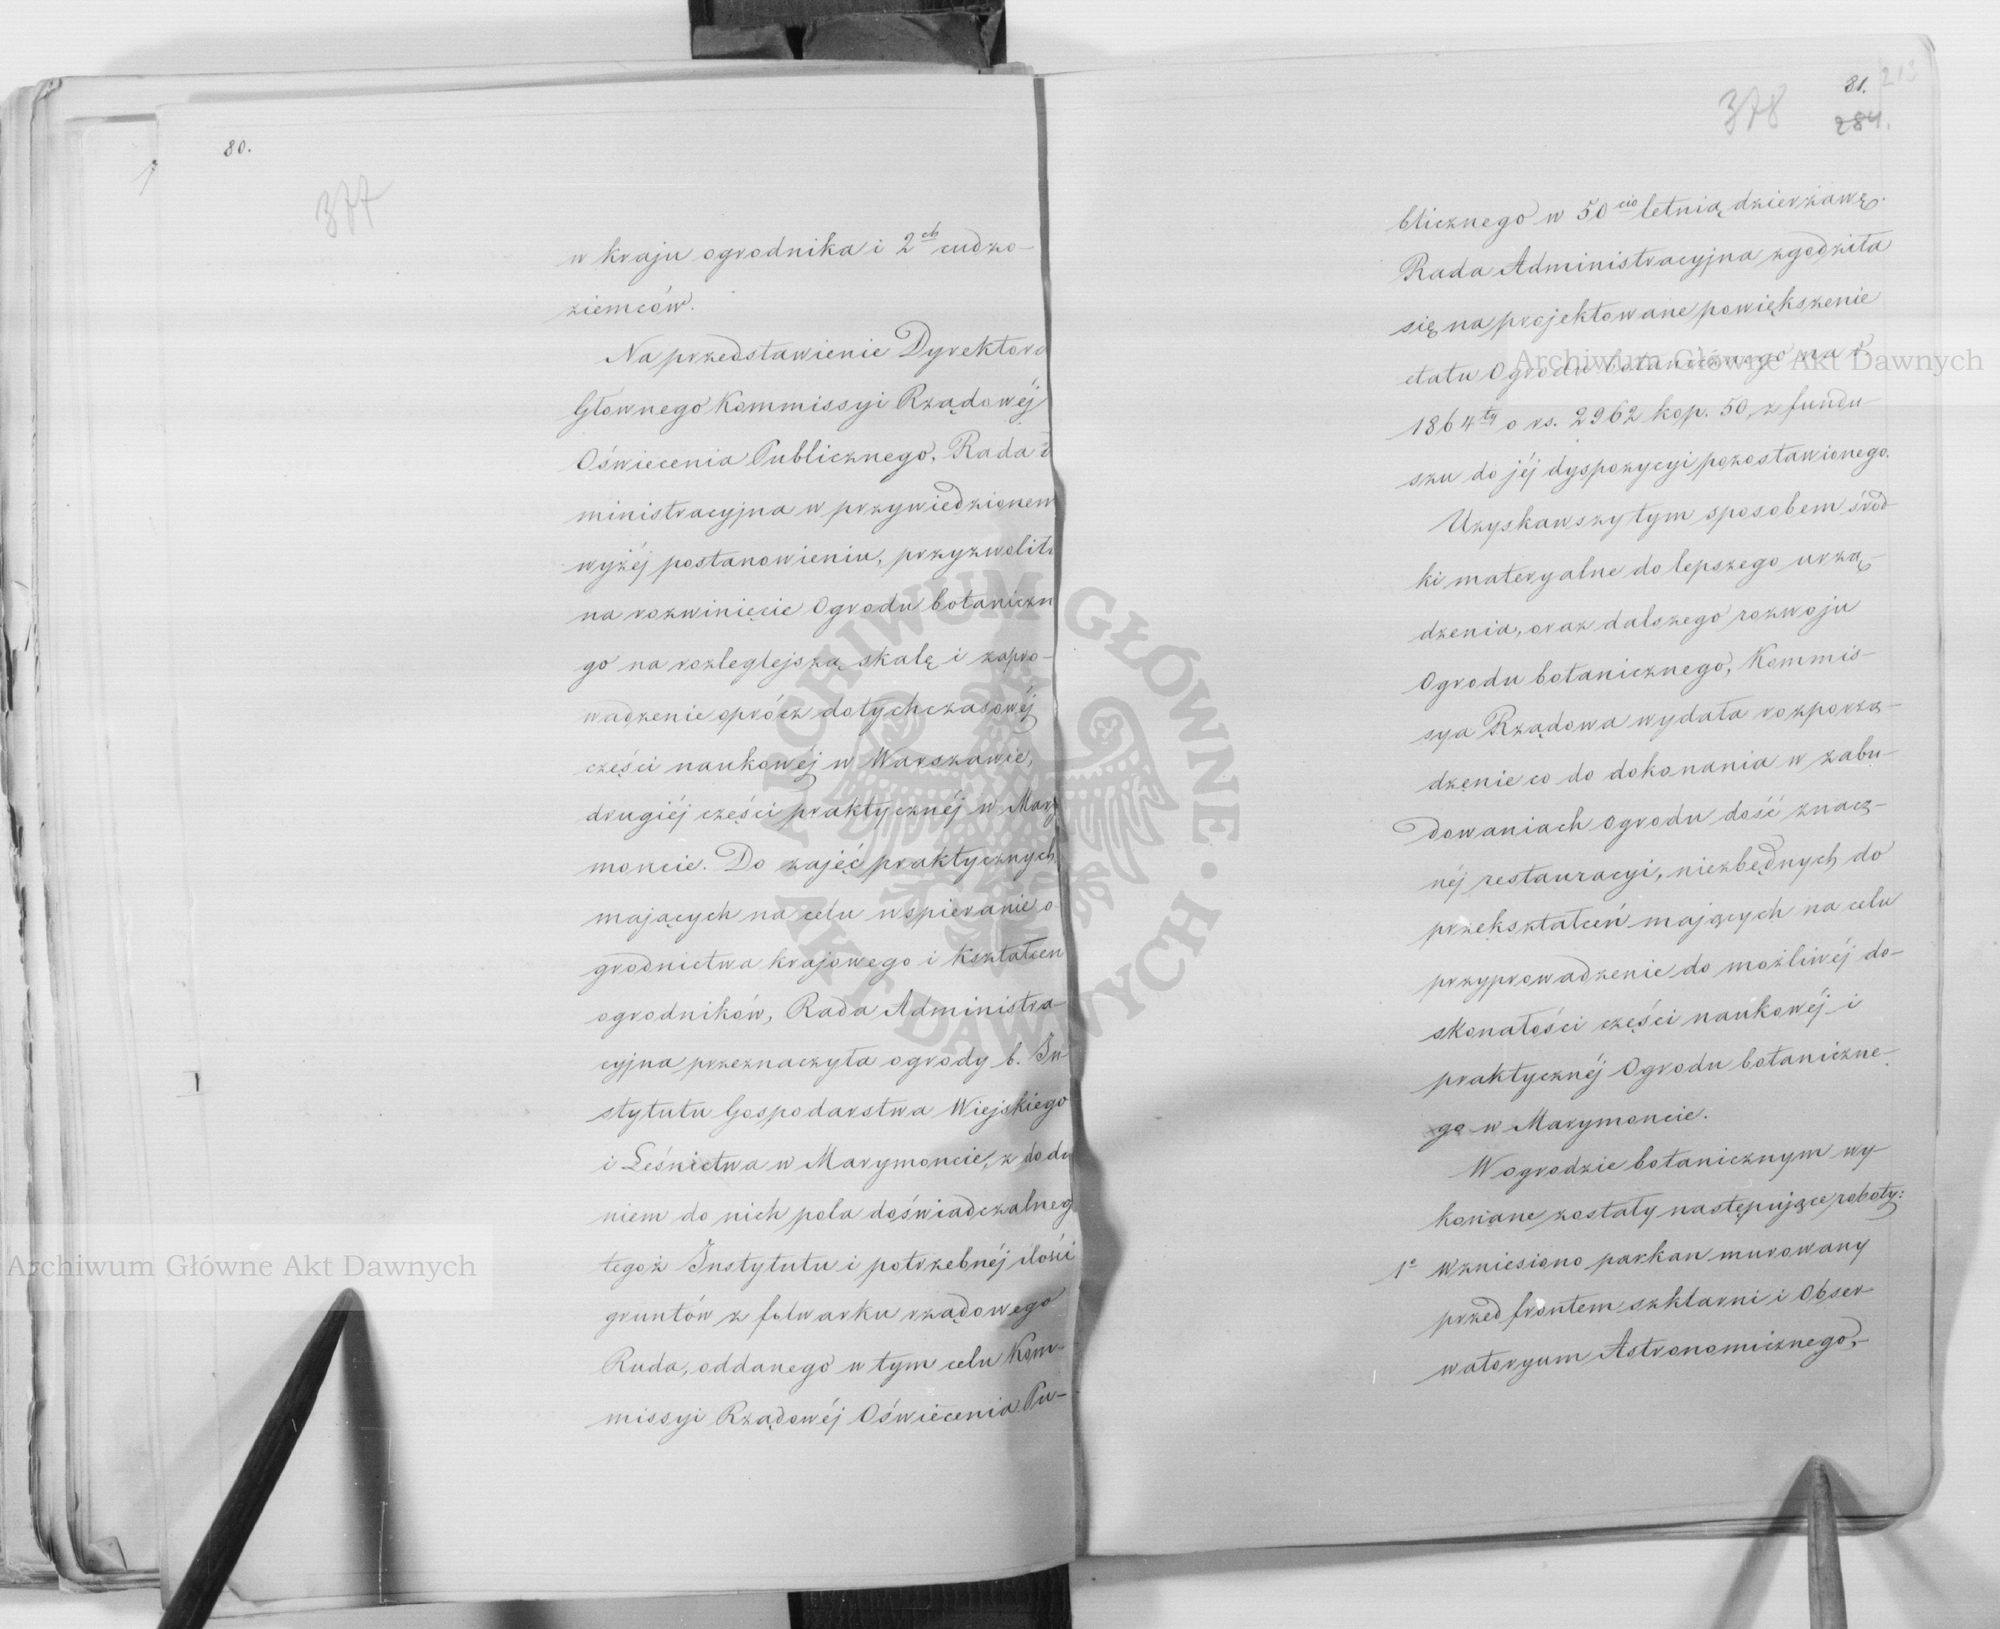 80.
377
w kraju ogrodnika i 2ch cudzo-
ziemców.
Na przedstawienie Dyrektora
Głównego Kommissyi Rządowéj
Oświecenia Publicznego, Rada
ministracyjna w przywiedzionem
wyżéj postanowieniu, przyzwoliła
na rozwinięcie Ogrodu botaniczn
go na rozleglejszą skalę i zapro-
wadzenie oprócz dotychczasowéj
części naukowéj w Warszawie,
drugiéj części praktycznéj w Mary
moncie. Do zajęć praktycznych
mających na celu wspieranie o-
grodnictwa krajowego i kształcen
ogrodników, Rada Administra-
cyjna przeznaczyła ogrody b. In-
stytutu Gospodarstwa Wiejskiego
i Leśnictwa w Marymoncie, z doda
niem do nich pola doświadczalneg
tegoż Instytutu i potrzebnéj ilości
gruntów z folwarku rządowego
Ruda, oddanego w tym celu Kom-
missyi Rządowéj Oświecenia Pu-
81. 213
378 284.
blicznego w 50cio letnią dzierżawę.
Rada Administracyjna zgodziła
się na projektowane powiększenie
etatu Ogrodu botanicznego na r.
1864ty o rs. 2962 kop. 50, z fundu-
szu do jéj dyspozycyi pozostawionego.
Uzyskawszy tym sposobem środ-
ki materyalne do lepszego urzą-
dzenia, oraz dalszego rozwoju
Ogrodu botanicznego, Kommis-
sya Rządowa wydała rozporzą-
dzenie co do dokonania w zabu-
dowaniach ogrodu dość znacz-
néj restauracyi, niezbędnych do
przekształceń mających na celu
przyprowadzenie do możliwéj do-
skonałości części naukowéj i
praktycznéj Ogrodu botaniczne-
go w Marymoncie.
W ogrodzie botanicznym wy-
konane zostały następujące roboty:
1o Wzniesiono parkan murowany
przed frontem szklarni i Obser-
watoryum Astronomicznego,-
Archiwum Główne Akt Dawnych
Archiwum Główne Akt Dawnych
ARCHIWUM GŁÓWNE · AKT DAWNYCH ·